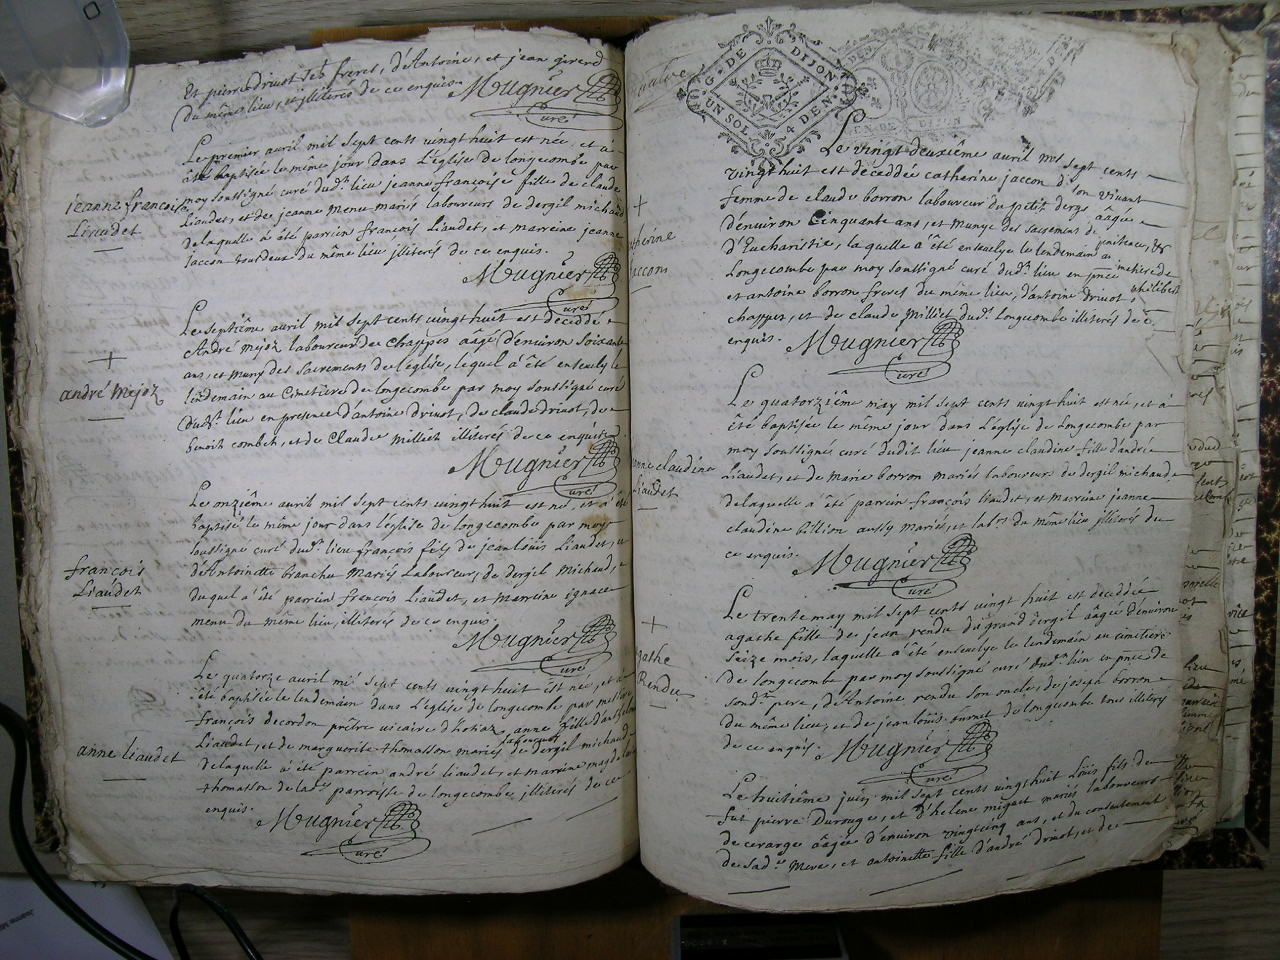 Et pierre drivot ses freres, d'Antoine, et jean girend
du même lieu, et illiteres de ce enquis Mugnier
Curé
Le premier avril mil sept cents vingt huit est née, et a
été baptisée le même jour dans L'eglise de longecombe par
moy soussigné curé dud. lieu jeanne françoise fille de claude
Liaudet, et de jeanne menu mariés laboureurs de dergil michaud
delaquelle à été parrein françois Liaudet, et marreine jeanne
jaccon tous deux du même lieu illiterés de ce enquis.
Mugnier
Curé
jeanne françoise
Liaudet
Le septième avril mil sept cents vingt huit est décédé
André mejoz laboureur de chappes âgé d'environ soixante
ans, et muny des sacrements de l'église, lequel à été enseuely le
lendemain au Cimetière de longecombe par moy soussigné curé
dud. lieu en presence d'antoine drivot, de claude drivot, de
benoit combet, et de claude milliet illiterés de ce enquis
Mugnier
Curé
+
andré mejoz
Le onzième avril mil sept cents vingt huit est né, et à été
baptisé le même jour dans léglise de longecombe par moy
soussigné curé dud. lieu françois fils de jean louis Liaudet, et
d'Antoinette branche Mariés Laboureurs de dergil michaud,
duquel à été parrein françois Liaudet, et Marreine ignace
menu du même lieu, illiterés de ce enquis
Mugnier
Curé
françois
Liaudet
Le quatorze avril mil sept cents vingt huit est née, et à
été baptisée le lendemain dans L'eglise de longecombe par
françois decordon prêtre vicaire d'hotone, anne fille d'andré
Liaudet, et de marguerite thomasson mariés laboureurs de dergil michaud
delaquelle à été parrein andré liaudet, et marreine
thomasson de lad. parroisse de longecombe illiterés de ce
enquis. Mugnier
Curé
anne liaudet
quatre
G. DE DIJON
UN SOL 4 DEN.
GEN. DE DIJON
Le vingt deuxième avril mil sept cents
vingt huit est decedée catherine jaccon d. son vivant
femme de claude borron laboureur du petit dergil, aagée
d'environ cinquante ans, et munye des sacrements de penitence, &
d'Eucharistie, laquelle a été enseuelye le lendemain au cimetiere de
Longecombe par moy soussigné curé dud. lieu en pnce philibert
et antoine borron freres du même lieu, d'antoine drivot
chappes, et de claude Milliet dud. longecombe illiterés de ce
enquis. Mugnier
Curé
+
therine
jaccon
Le quatorzième may mil sept cents vingt huit est née, et à
été baptisée le même jour dans L'église de Longecombe par
moy soussigné curé dudit lieu jeanne claudine fille d'andré
liaudet, et de marie borron mariés laboureurs de dergil michaud
delaquelle à été parrein françois liaudet, et marreine jeanne
claudine billion aussy mariés, et labrs du même lieu illiterés du
ce enquis. Mugnier
Curé
anne claudine
liaudet
Le trente may mil sept cents vingt huit est décédée
agathe fille de jean rendu du grand dergil aagée denviron
seize mois, laquelle à été enseuelye le lendemain au cimetiere
de longecombe par moy soussigné curé dud. lieu en pnce de
sond. pere, d'Antoine rendu son oncle, de joseph borron
du même lieu, et de jean louis turnet de longecombe tous illiterés
de ce enquis. Mugnier
Curé
+
gathe
Rendu
Le huitième juin mil sept cents vingt huit Louis fils de
fut pierre Durouge, et d'helene migaet mariés laboureurs
de cerarge aâgé d'environ vingtcinq ans, et du consentement
de sad. Mere, et antoinette fille d'andré drivot, et de